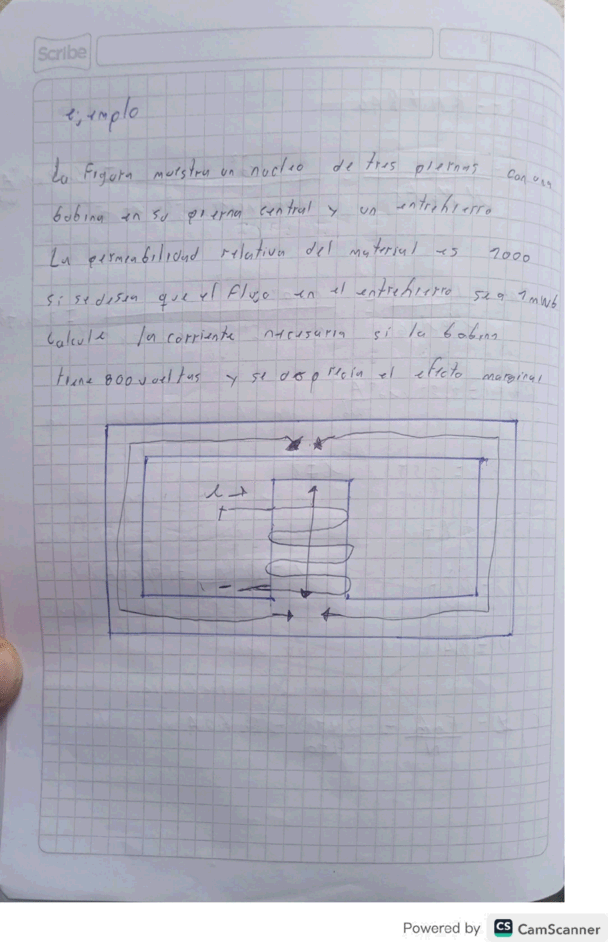 Scribe
ejemplo
La Figura muestra un nucleo de tres piernas con una
bobina en su pierna central y un entrehierro
La permeabilidad relativa del material es 2000
si se desea que el flujo en el entrehierro sea 1mWb
Calcule la corriente necesaria si la bobina
tiene 800 vueltas y se desprecia el efecto marginal
i →
+
-
Powered by CS CamScanner